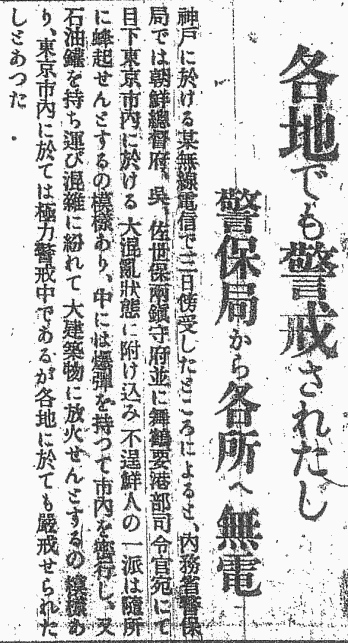 各地でも警戒されたし
警保局から各所へ無電
神戸に於ける某無線電信で三日傍受したところによると、内務省警保
局では朝鮮總督府、呉、佐世保兩鎭守府並に舞鶴要港部司令官宛にて
目下東京市内に於ける大混亂狀態に附け込み不逞鮮人の一派は隨所
に蜂起せんとするの模樣あり、中には爆彈を持つて市内を密行し、又
石油鑵を持ち運び混雜に紛れて大建築物に放火せんとするの模樣あ
り、東京市内に於ては極力警戒中であるが各地に於ても嚴戒せられた
しとあつた